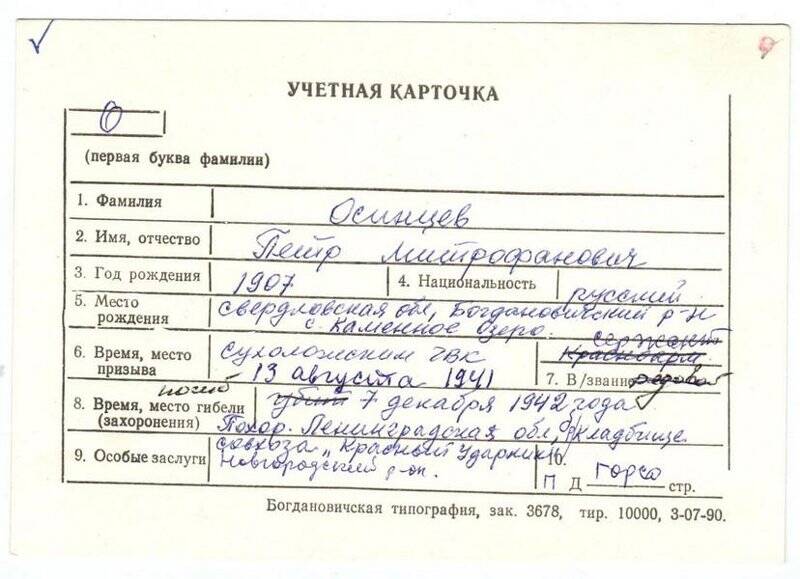 УЧЕТНАЯ КАРТОЧКА
О
(первая буква фамилии)
1. Фамилия Осинцев
2. Имя, отчество Петр Митрофанович
3. Год рождения 1907 4. Национальность русский
5. Место рождения Свердловская обл, Богдановичский р-н
с. Каменное озеро.
сержант
6. Время, место призыва Сухоложским ГВК Красноарм
13 августа 1941 7. В/звание рядовой
погиб
8. Время, место гибели (захоронения) убит 7 декабря 1942 года
Похор. Ленинградская обл, кладбище
совхоза "Красный Ударник"
9. Особые заслуги Новгородский р-он. 10.
П Д горса стр.
Богдановичская типография, зак. 3678, тир. 10000, 3-07-90.